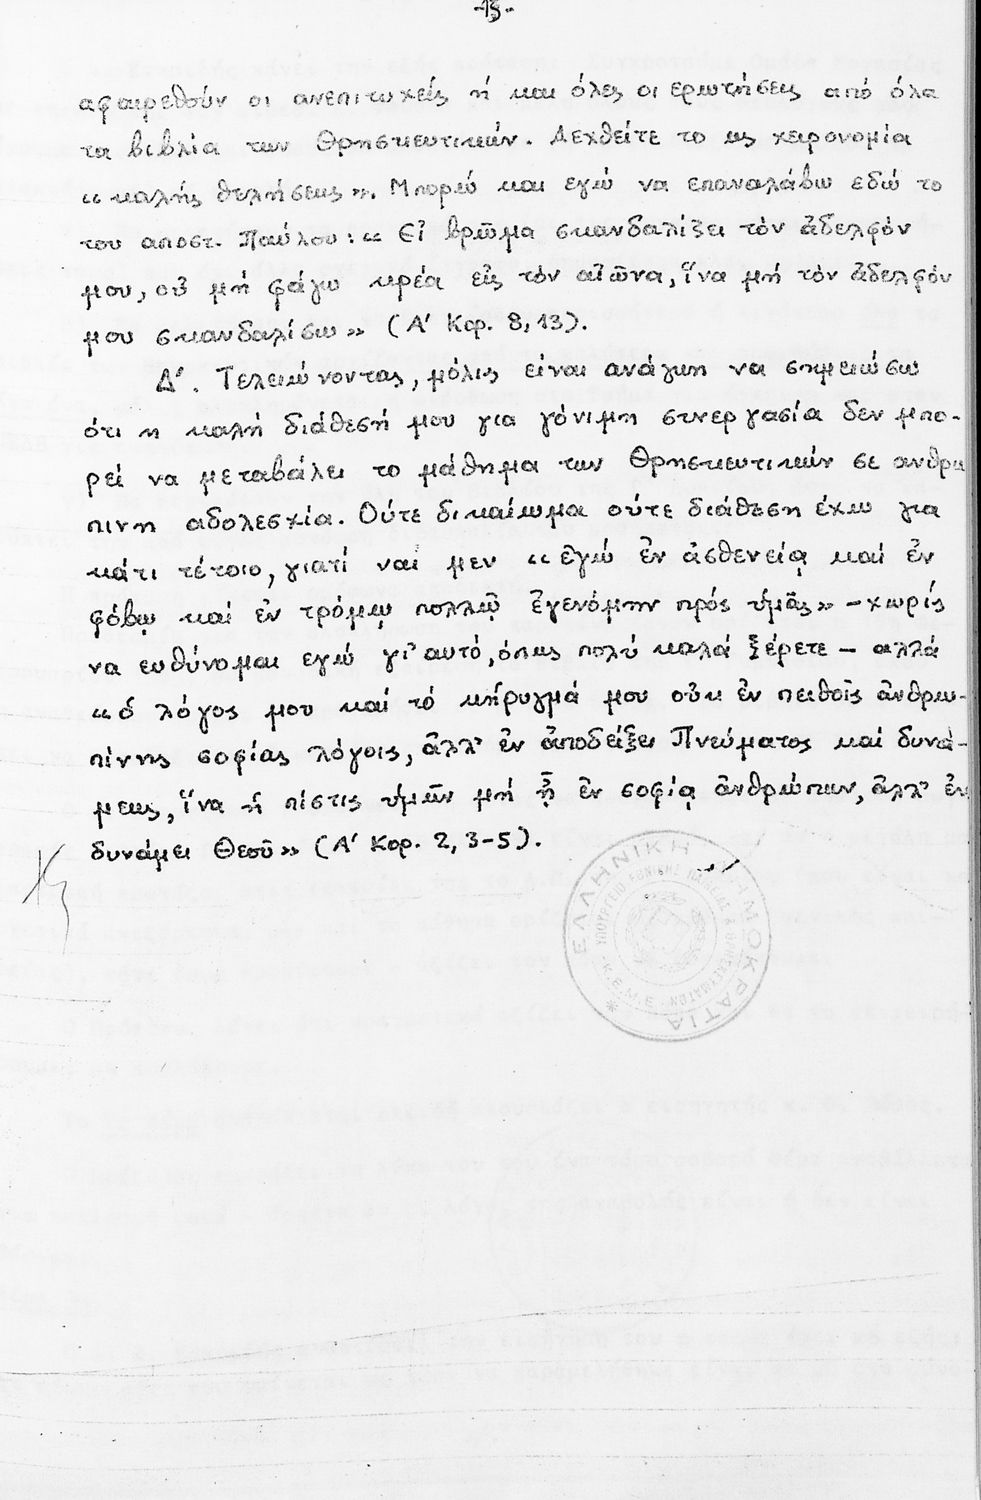 -13-
αφαιρεθούν οι ανεπιτυχείς ή και όλες οι ερωτήσεις από όλα
τα βιβλία των Θρησκευτικών. Δεχθείτε το ως χειρονομία
«καλής θελήσεως». Μπορώ και εγώ να επαναλάβω εδώ το
του αποστ. Παύλου: «Εἰ βρῶμα σκανδαλίζει τὸν ἀδελφόν
μου, οὐ μή φάγω κρέα εἰς τὸν αἰῶνα, ἵνα μή τὸν ἀδελφόν
μου σκανδαλίσω» (Α' Κορ. 8, 13).
Δ'. Τελειώνοντας, μόλις είναι ανάγκη να σημειώσω
ότι η καλή διάθεσή μου για γόνιμη συνεργασία δεν μπο-
ρεί να μεταβάλει το μάθημα των Θρησκευτικών σε ανθρω
πινη αδολεσχία. Ούτε δικαίωμα ούτε διάθεση έχω για
κάτι τέτοιο, γιατί ναί μεν «ἐγώ ἐν ἀσθενείᾳ καί ἐν
φόβῳ καί ἐν τρόμῳ πολλῷ ἐγενόμην πρός ὑμᾶς» - χωρίς
να ευθύνομαι εγώ γι' αυτό, όπως πολύ καλά ξέρετε - αλλά
«ὁ λόγος μου καί τό κήρυγμά μου οὐκ ἐν πειθοῖς ἀνθρω-
πίνης σοφίας λόγοις, ἀλλ' ἐν ἀποδείξει Πνεύματος καί δυνά-
μεως, ἵνα ἡ πίστις ὑμῶν μή ᾖ ἐν σοφίᾳ ἀνθρώπων, ἀλλ' ἐν
δυνάμει Θεοῦ» (Α' Κορ. 2, 3-5).
ΕΛΛΗΝΙΚΗ ΔΗΜΟΚΡΑΤΙΑ
ΥΠΟΥΡΓΕΙΟ ΕΘΝΙΚΗΣ ΠΑΙΔΕΙΑΣ & ΘΡΗΣΚΕΥΜΑΤΩΝ
Κ.Ε.Μ.Ε